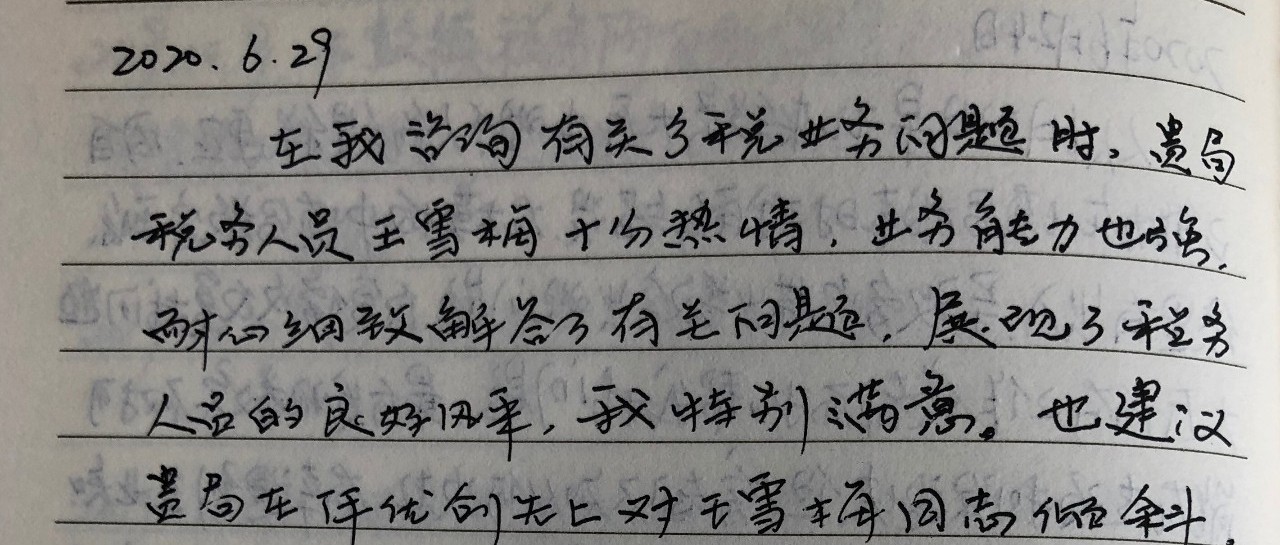 2020.6.29
在我咨询有关个税业务问题时，贵局
税务人员王雪梅十分热情，业务能力也强，
耐心细致解答了有关问题，展现了税务
人员的良好风采，我特别满意。也建议
贵局在评优创先上对王雪梅同志倾斜，